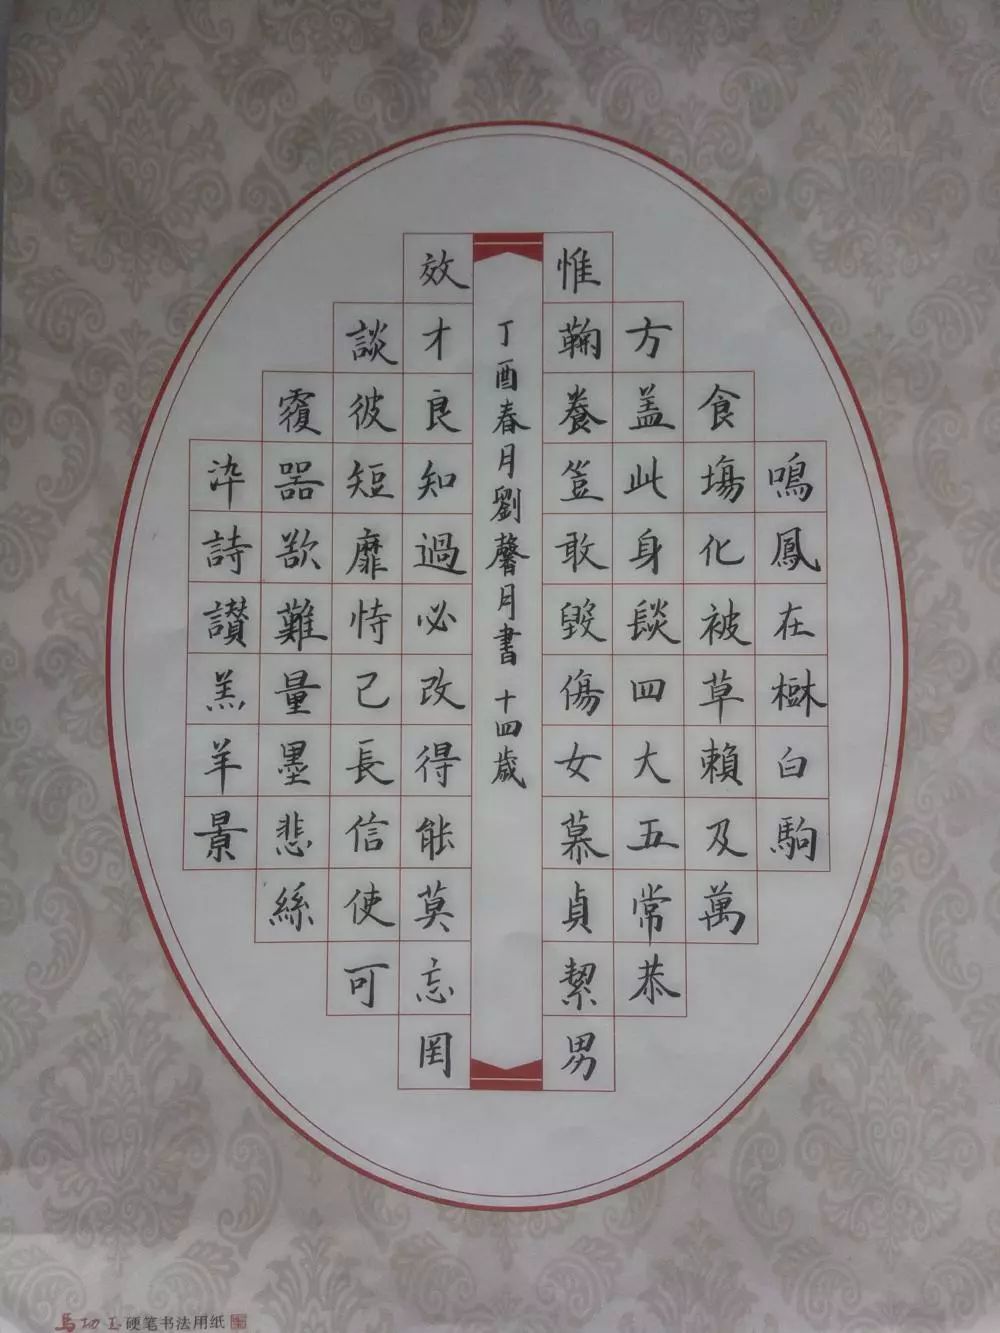 鳴鳳在樹白駒
食場化被草賴及萬
方盖此身髮四大五常恭
惟鞠養豈敢毀傷女慕貞絜男
丁酉春月劉馨月書 十四歲
效才良知過必改得能莫忘罔
談彼短靡恃己長信使可
覆器欲難量墨悲絲
染詩讚羔羊景
硬笔书法用纸